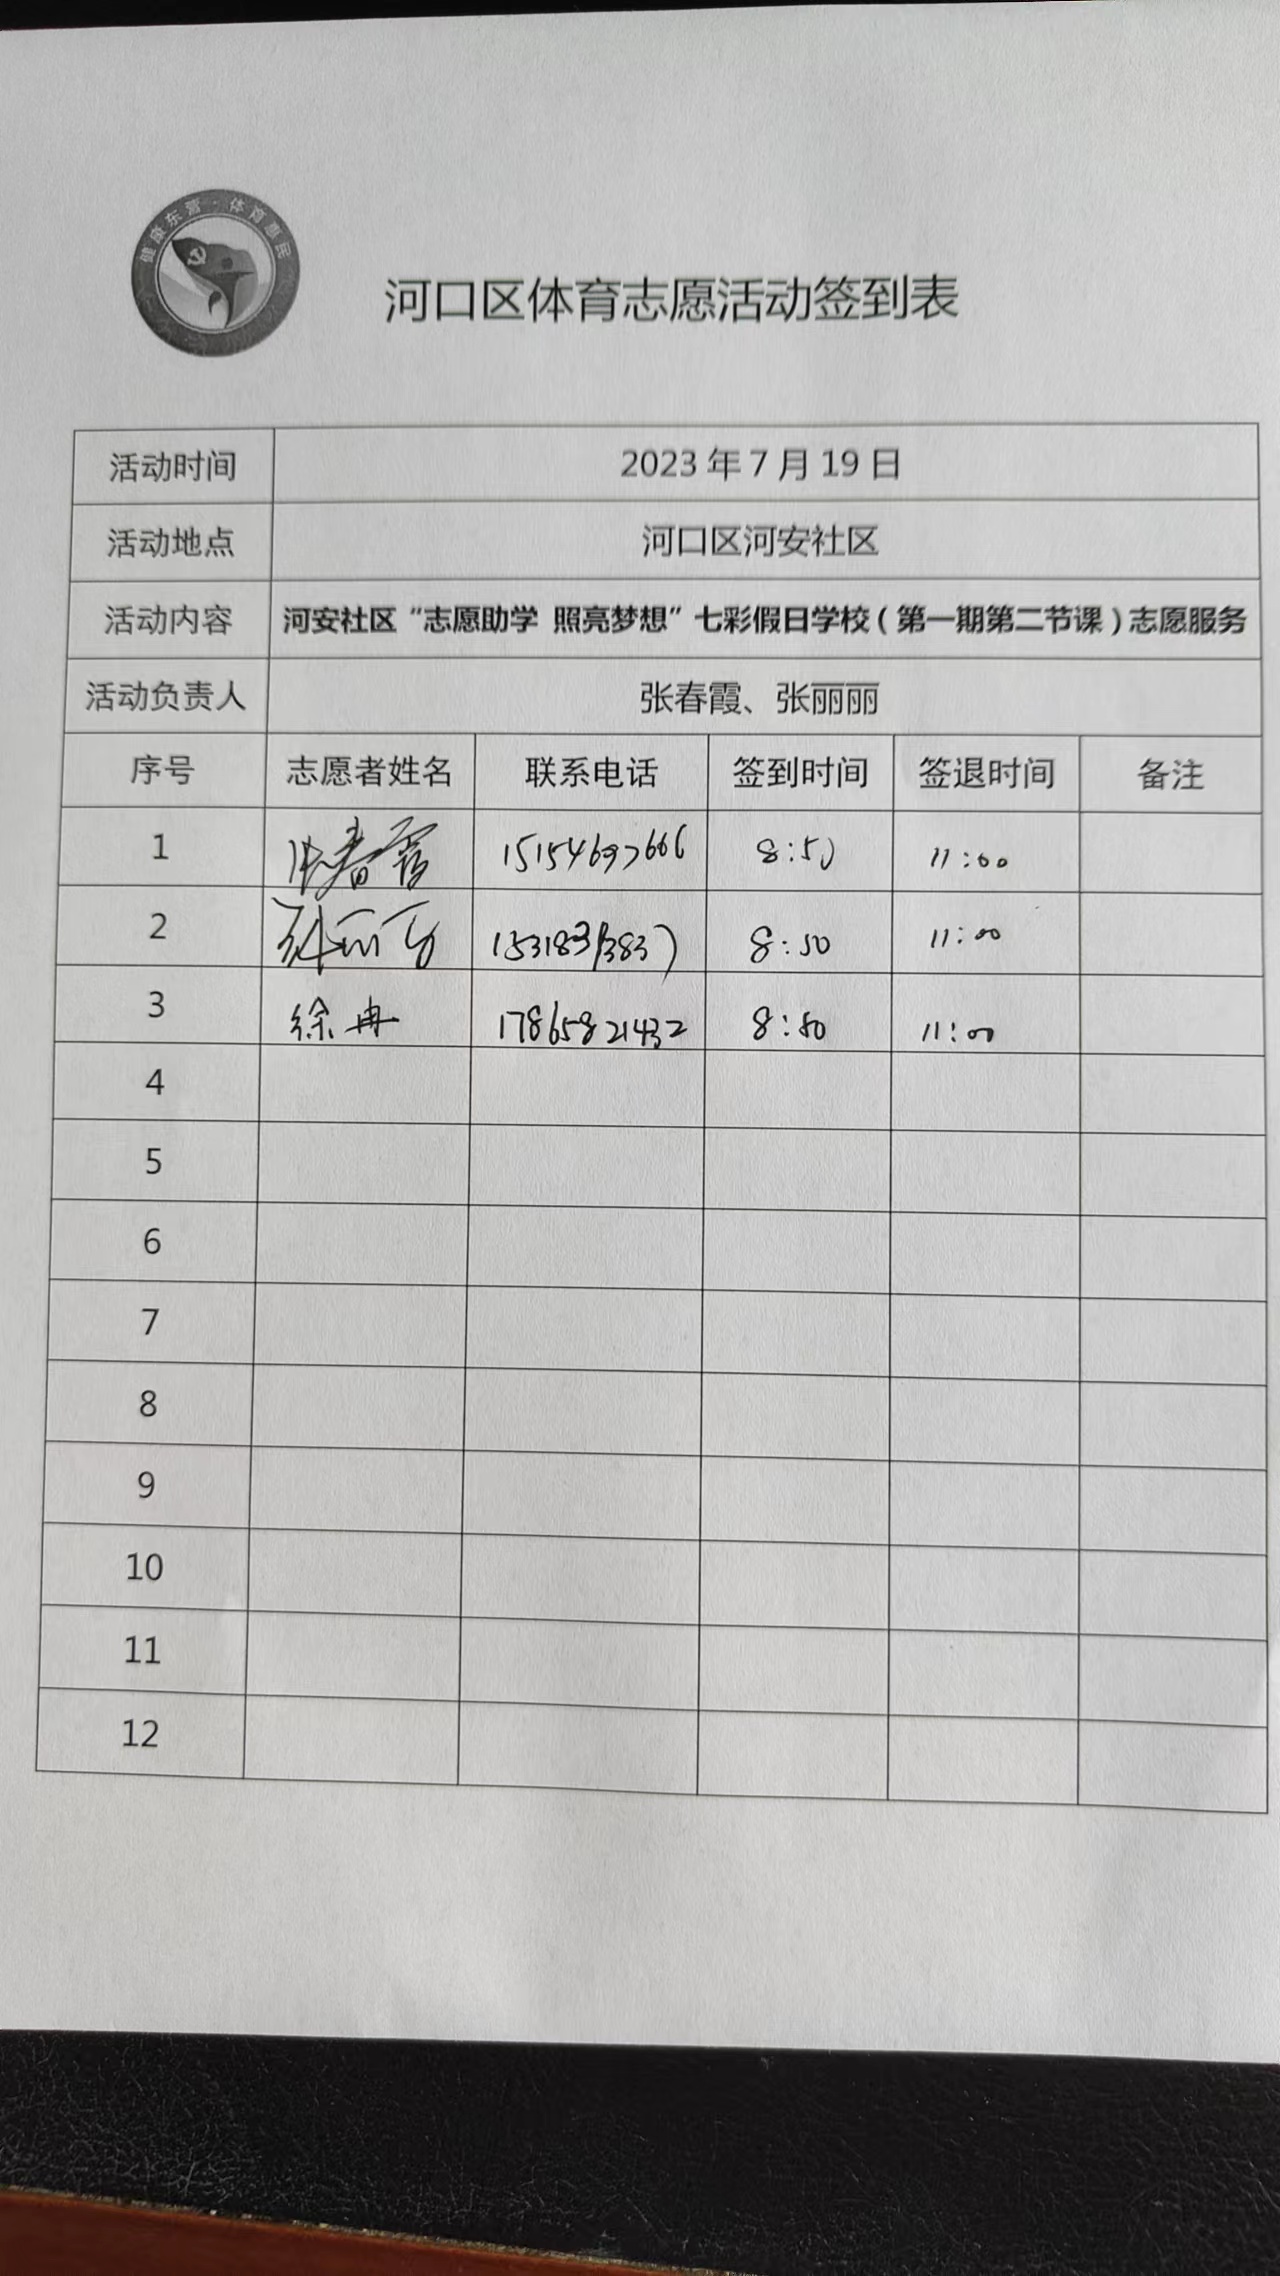 健康东营·体育惠民
河口区体育志愿活动签到表
活动时间 2023年7月19日
活动地点 河口区河安社区
活动内容 河安社区“志愿助学 照亮梦想”七彩假日学校(第一期第二节课)志愿服务
活动负责人 张春霞、张丽丽
序号 志愿者姓名 联系电话 签到时间 签退时间 备注
1 张春霞 15154697666 8:50 11:00
2 张丽丽 8:50 11:00
3 徐冉 17865821432 8:50 11:00
4
5
6
7
8
9
10
11
12